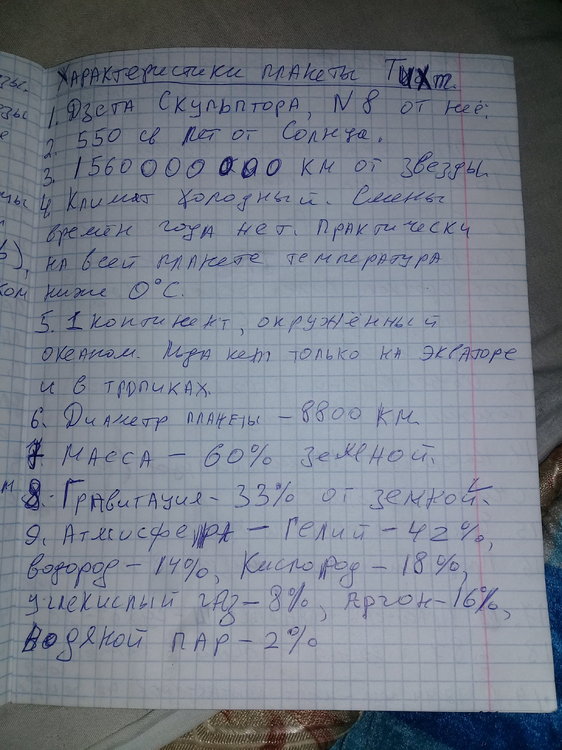 Характеристики планеты Тихт.
1. Дзета Скульптора, N8 от неё.
2. 550 св лет от Солнца.
3. 1560 000 000 км от звезды.
4. Климат холодный. Смены
времён года нет. Практически
на всей планете температура
ниже 0°C.
5. 1 континент, окружённый
океаном. Льда нет только на экваторе
и в тропиках.
6. Диаметр планеты – 8800 км.
7. Масса – 60% земной.
8. Гравитация – 33% от земной.
9. Атмосфера – Гелий – 42%,
водород – 14%, Кислород – 18%,
углекислый газ – 8%, Аргон – 16%,
водяной пар – 2%